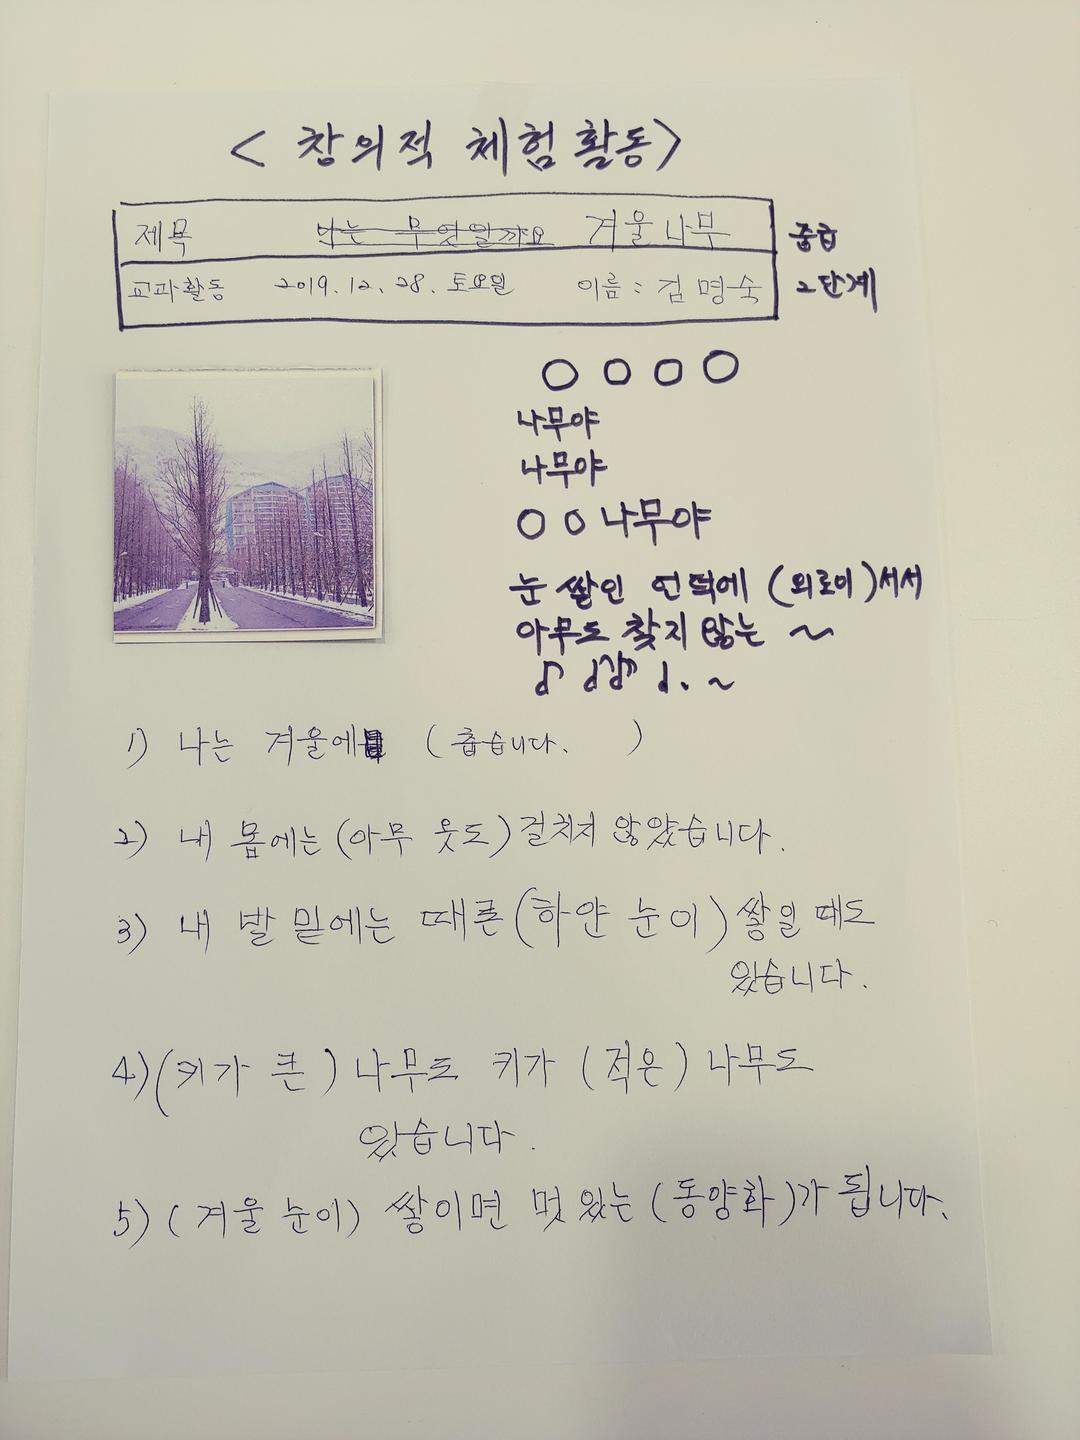 < 창의적 체험활동>
제목 나는 무엇일까요 겨울나무
중급
교과활동 2019. 12. 28. 토요일 이름 : 김명숙
2단계
○ ○ ○ ○
나무야
나무야
○ ○ 나무야
눈 쌓인 언덕에 (외로이)서서
아무도 찾지 않는 ~
♪ ♩♪♪ ♩. ~
1) 나는 겨울에 (춥습니다. )
2) 내 몸에는 (아무 옷도) 걸치지 않았습니다.
3) 내 발 밑에는 때론 (하얀 눈이) 쌓일 때도
있습니다.
4) (키가 큰) 나무도 키가 (적은) 나무도
있습니다.
5) (겨울 눈이) 쌓이면 멋 있는 (동양화)가 됩니다.